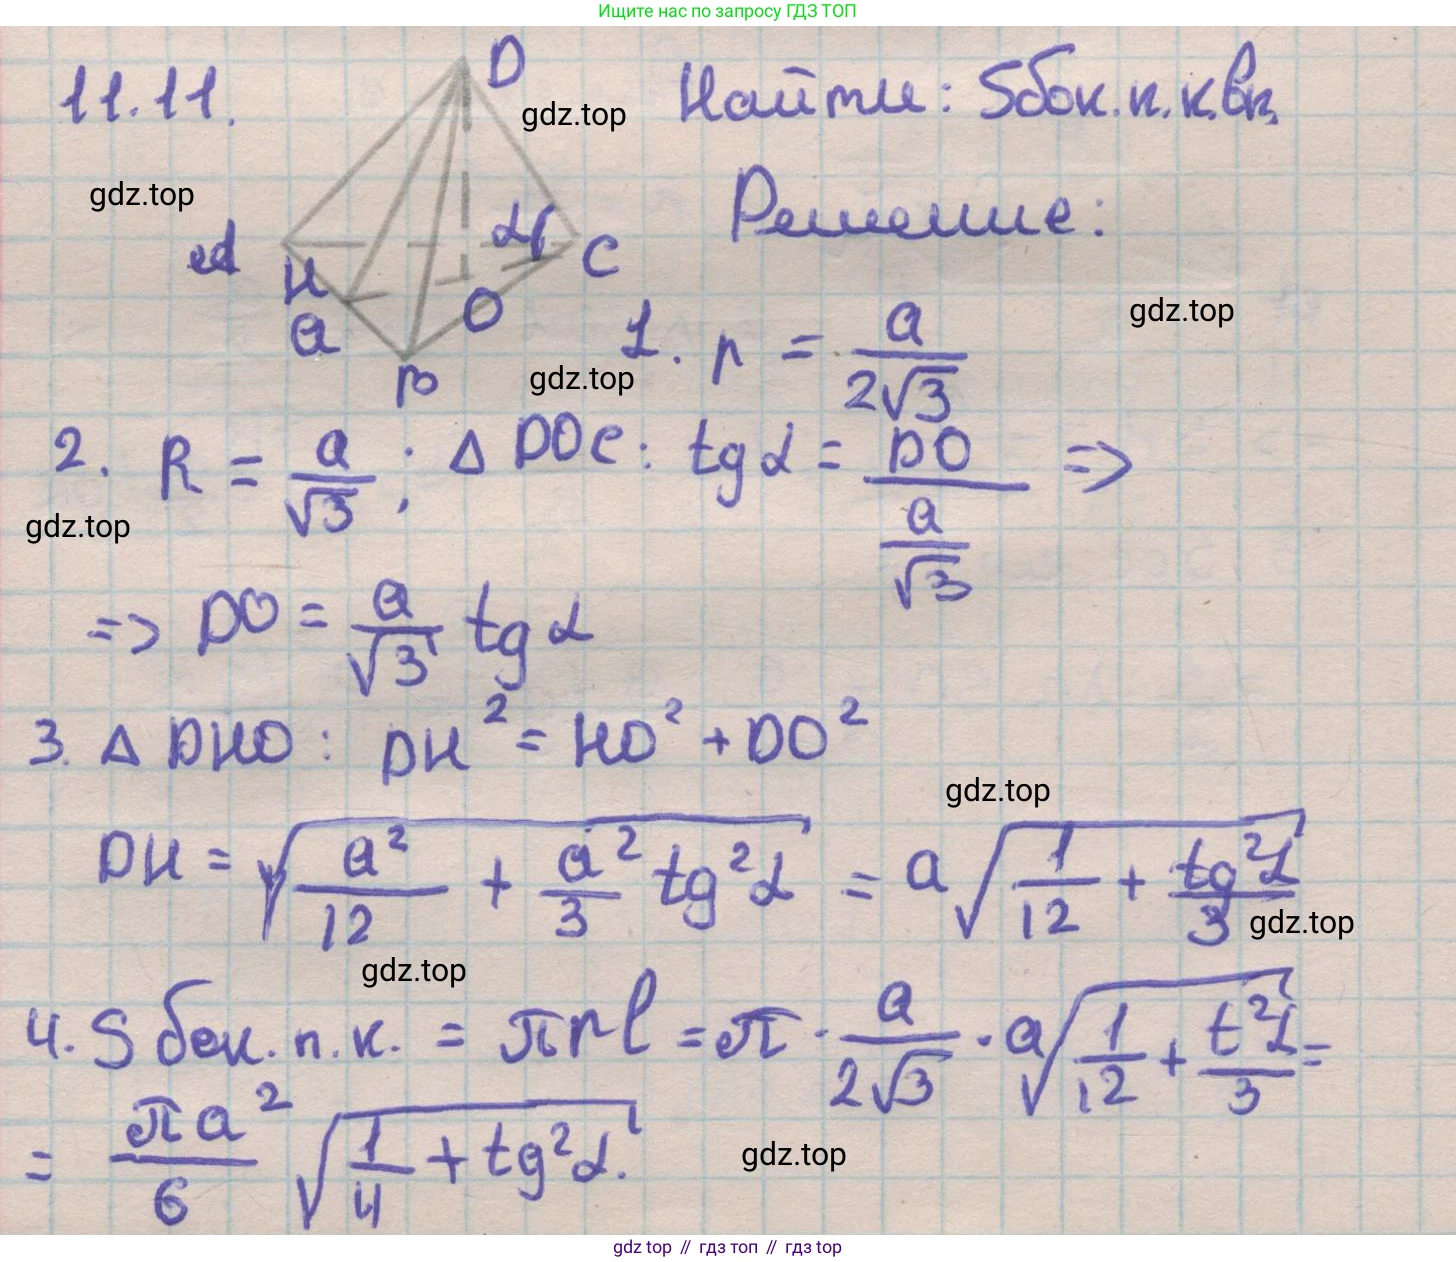 Ищите нас по запросу ГДЗ ТОП
11.11.
D
gdz.top
Найти: Sбок.п.к.вп.
gdz.top
Решение:
A
H
a
α
C
O
B
gdz.top
1. r = a/(2√3)
gdz.top
2. R = a/√3; Δ DOC: tg α = DO/(a/√3) =>
gdz.top
=> DO = a/√3 tg α
3. Δ DHO: DH² = HO² + DO²
gdz.top
DH = √(a²/12 + a²/3 tg²α) = a√(1/12 + tg²α/3)
gdz.top
gdz.top
4. Sбок.п.к. = πrl = π · a/(2√3) · a√(1/12 + t²α/3) =
= πa²/6 √(1/4 + tg²α).
gdz.top
gdz top // гдз топ // гдз top